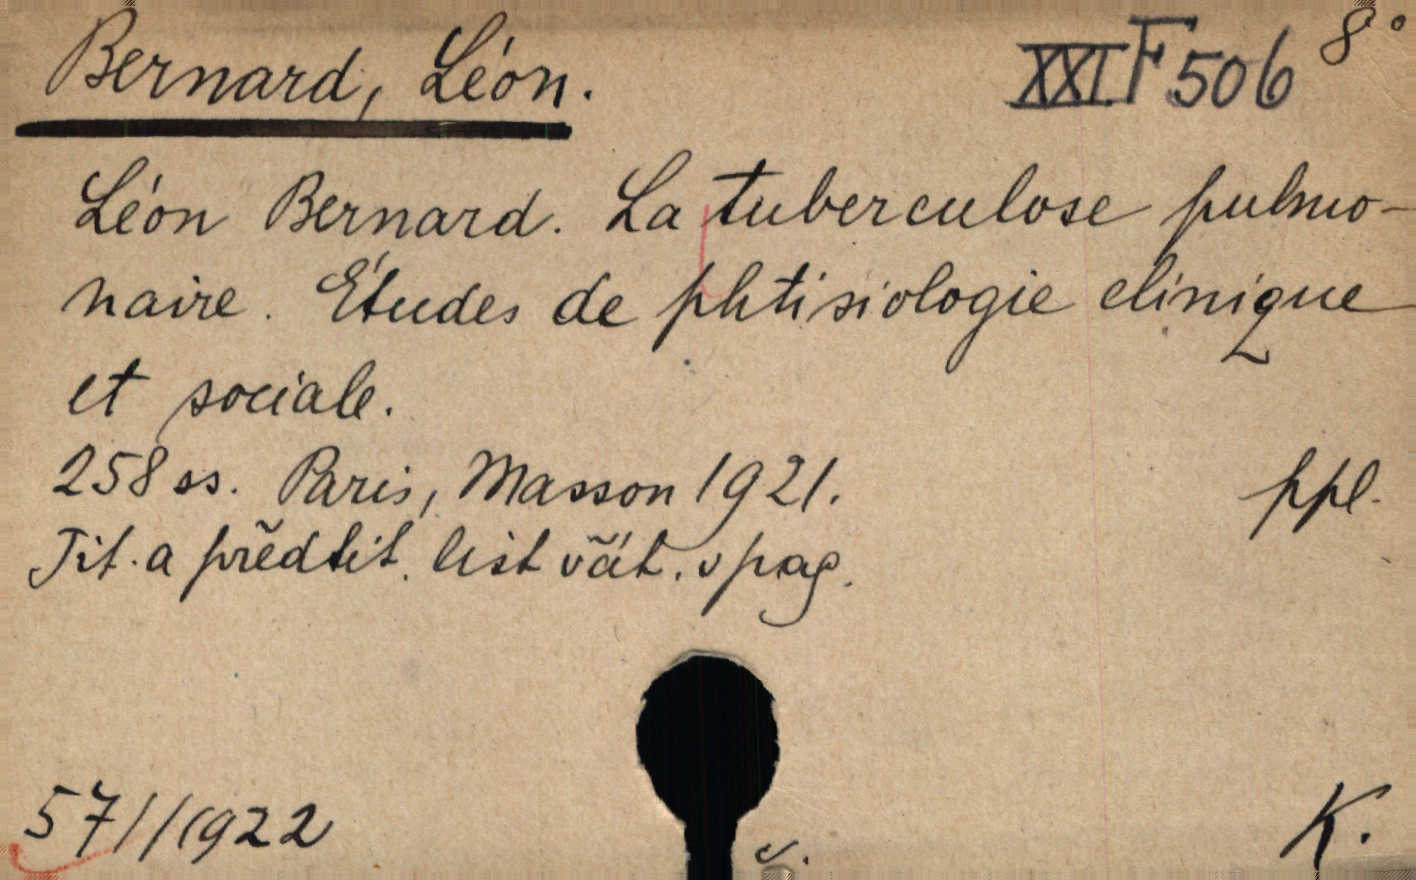 Bernard, Léon. XXI F 506 8°
Léon Bernard. La tuberculose pulmo-
naire. Études de phtisiologie clinique
et sociale.
258 ss. Paris, Masson 1921. ppl.
Tit. a předtit. list včít. v pag.
571/1922 K.